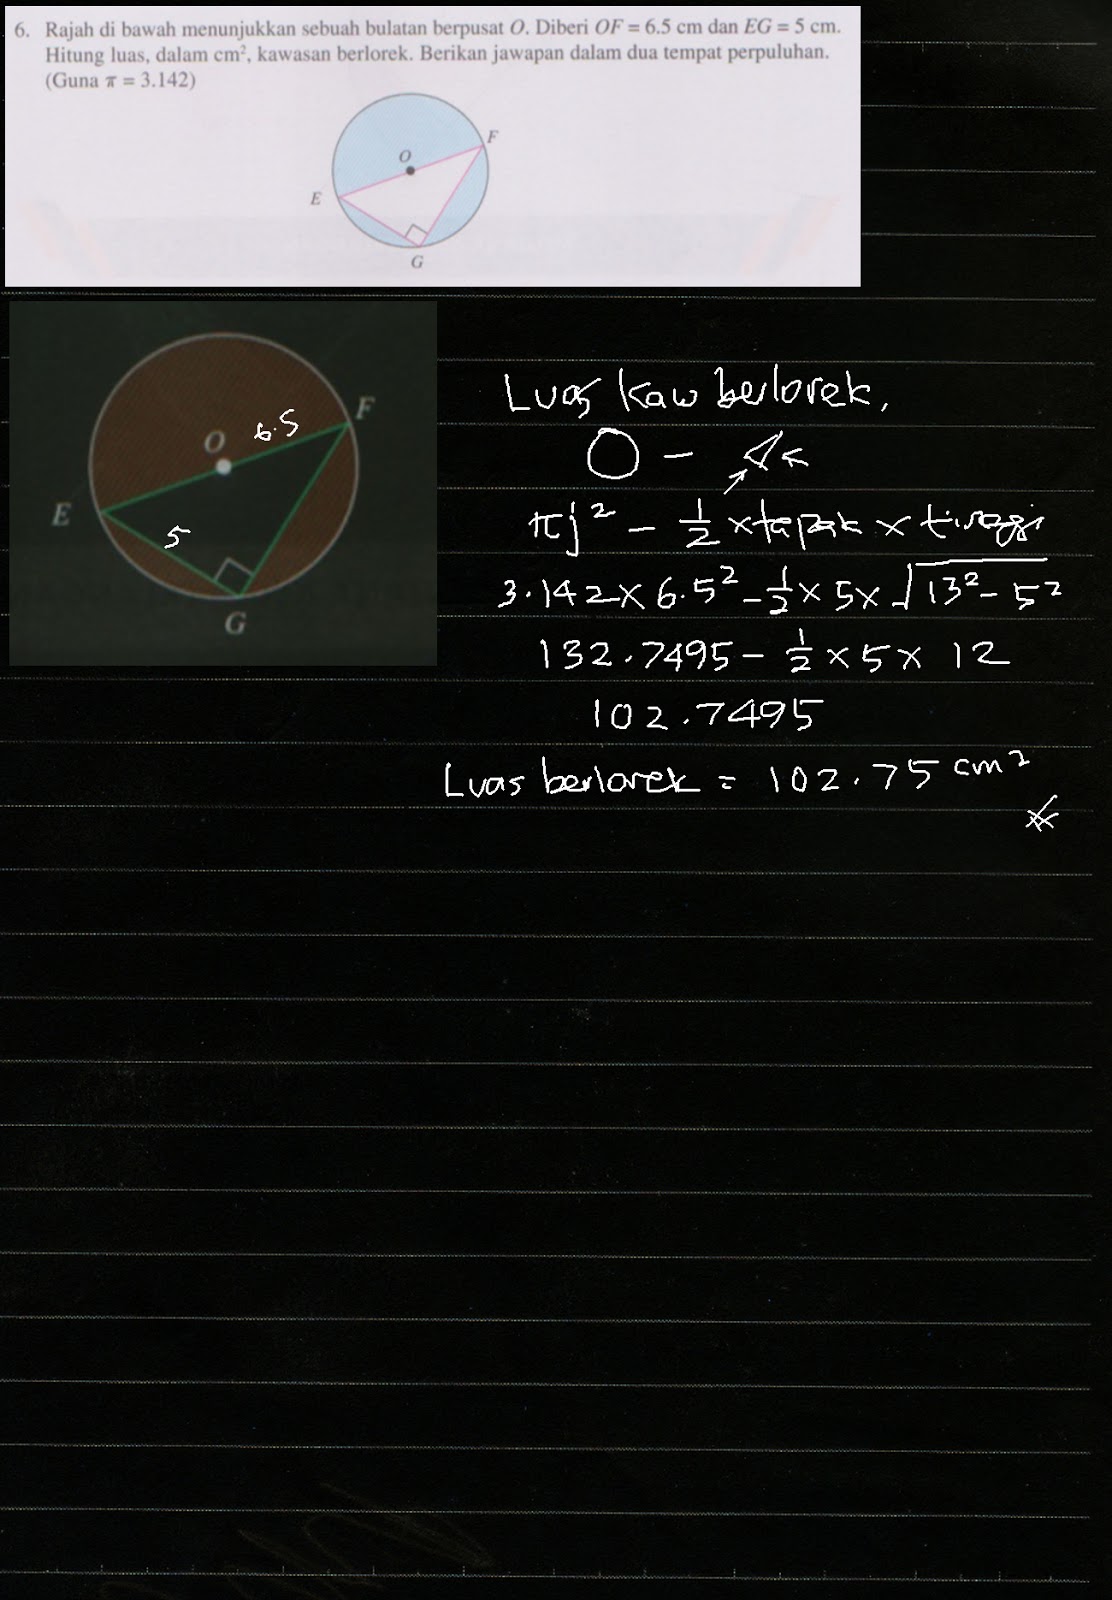 6. Rajah di bawah menunjukkan sebuah bulatan berpusat O. Diberi OF = 6.5 cm dan EG = 5 cm.
Hitung luas, dalam cm², kawasan berlorek. Berikan jawapan dalam dua tempat perpuluhan.
(Guna π = 3.142)
F
O
E
G
F
6.5
O
E
5
G
Luas kaw berlorek,
πj² - 1/2 × tapak × tinggi
3.142 × 6.5² - 1/2 × 5 × √13² - 5²
132.7495 - 1/2 × 5 × 12
102.7495
Luas berlorek = 102.75 cm²